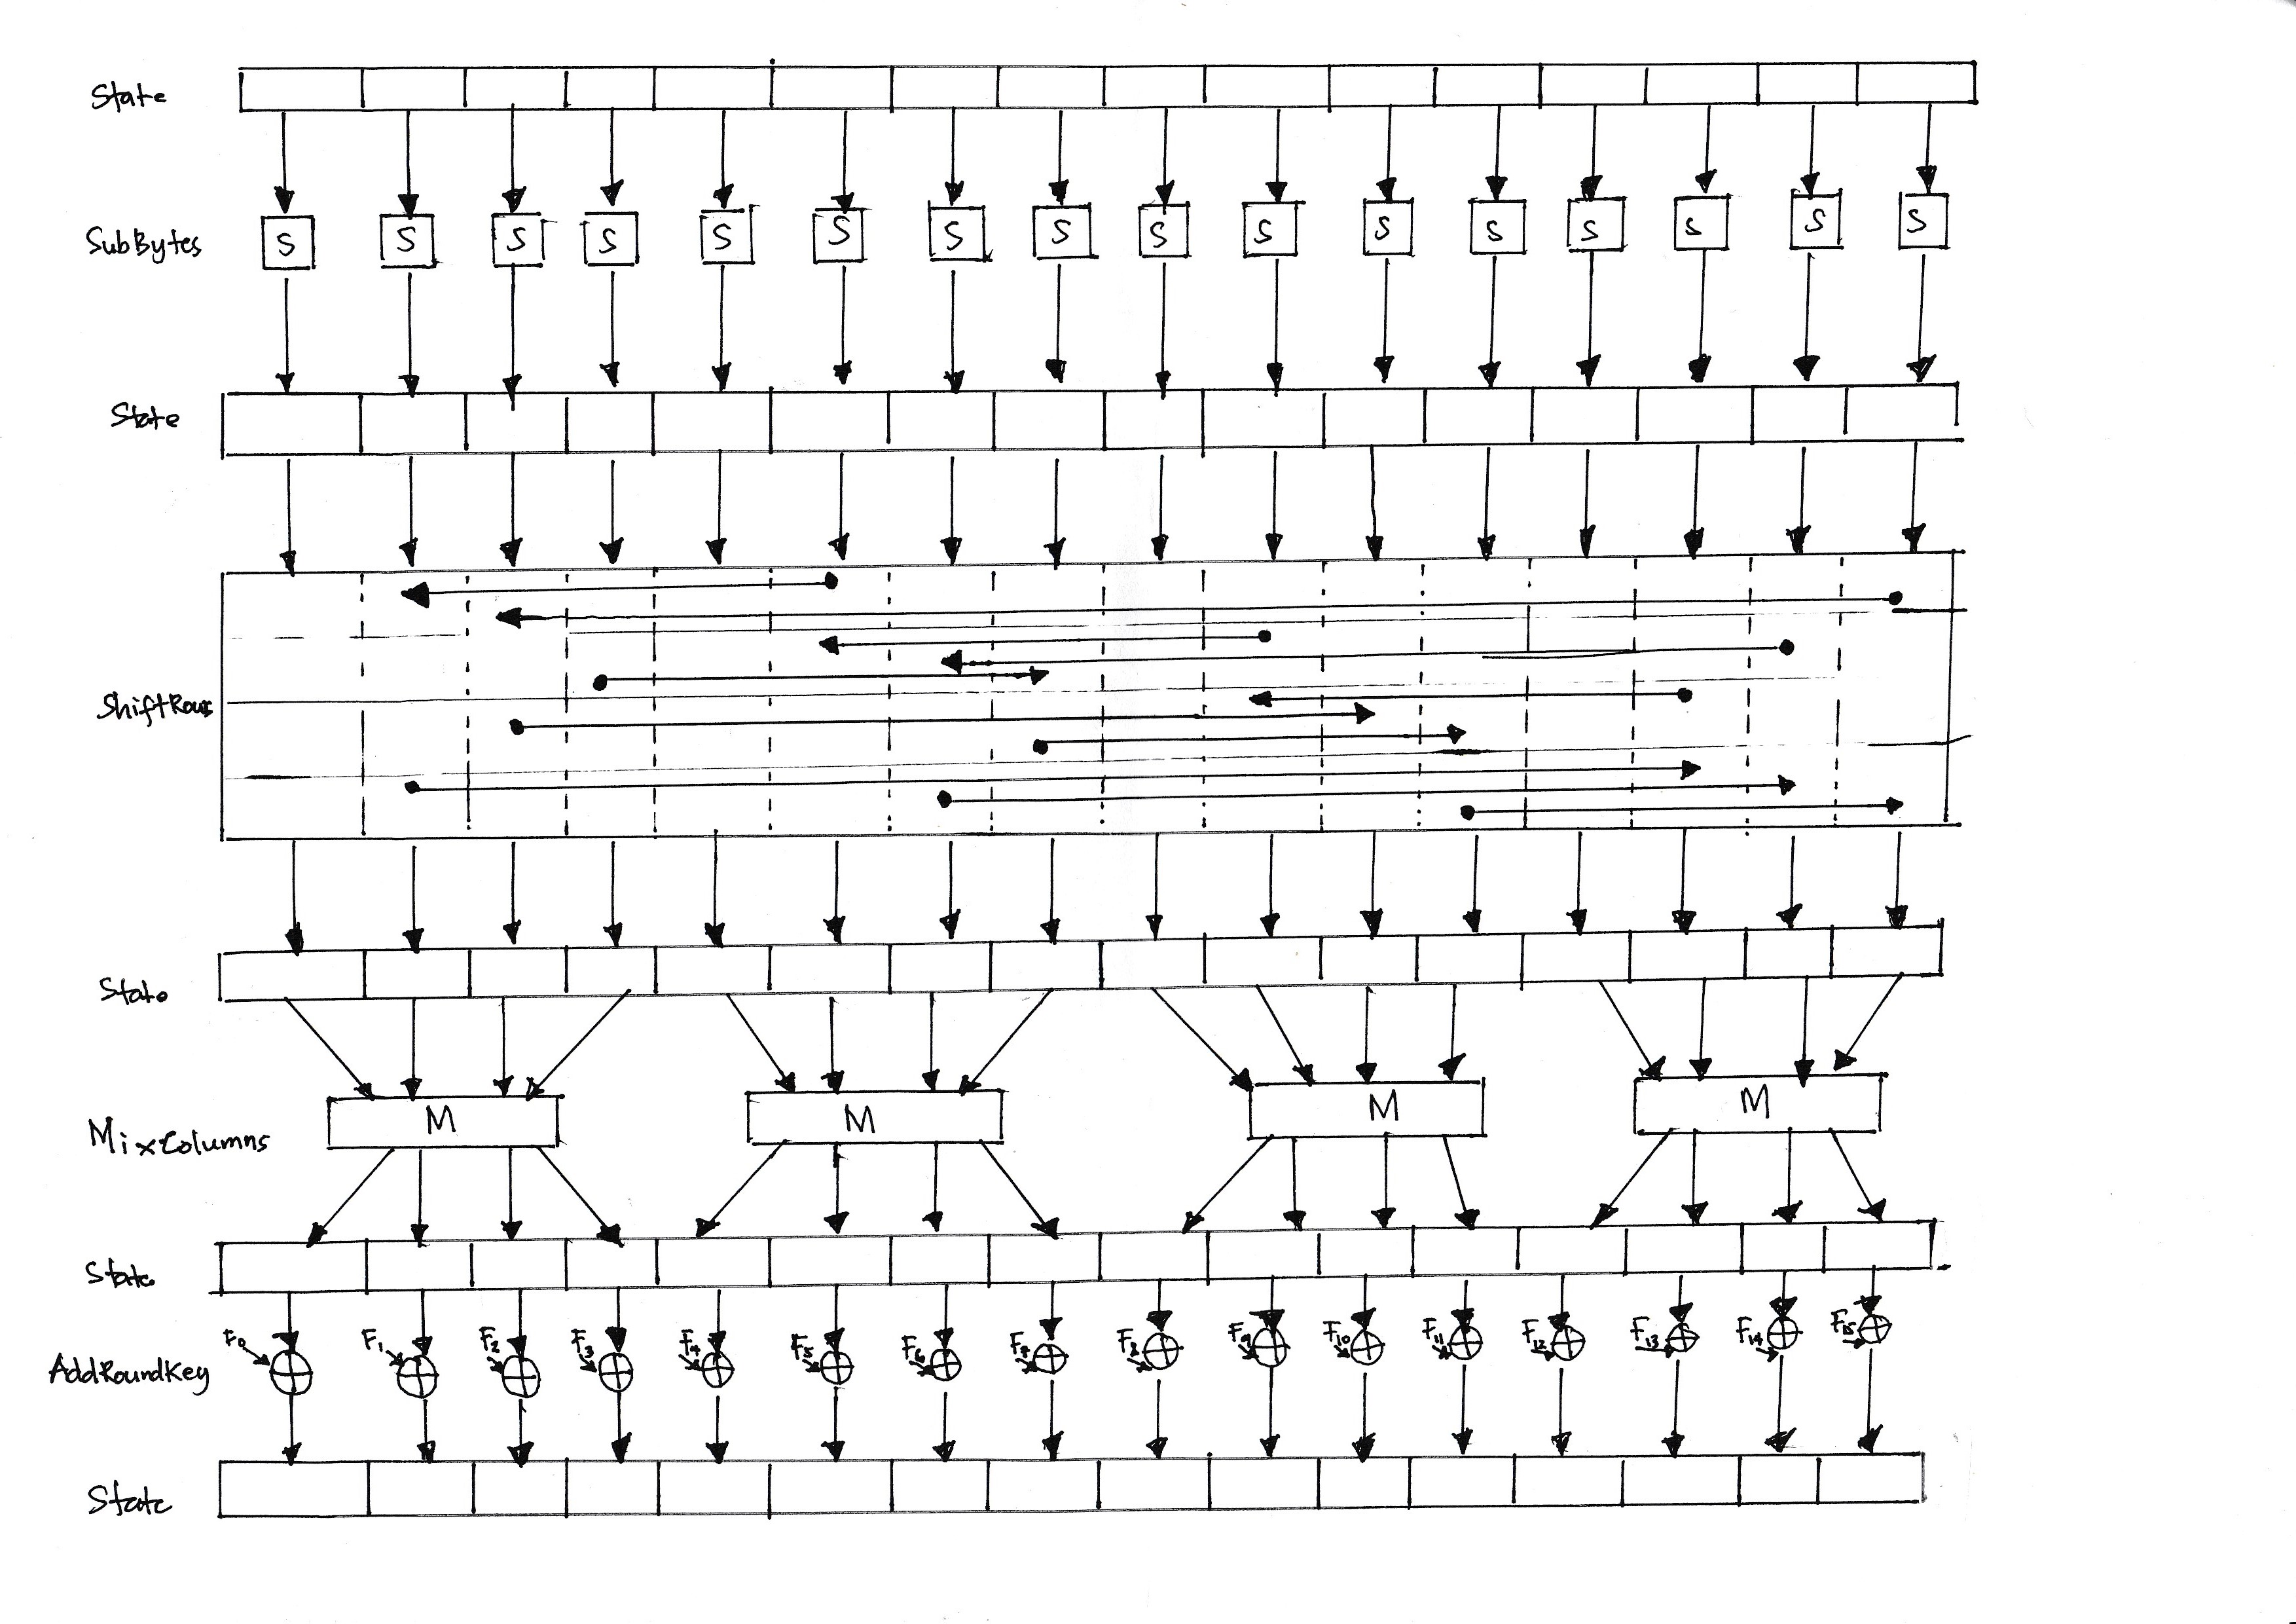 State
SubBytes S S S S S S S S S S S S S S S S
State
ShiftRows
State
MixColumns M M M M
State
F0 F1 F2 F3 F4 F5 F6 F7 F8 F9 F10 F11 F12 F13 F14 F15
AddRoundKey
State